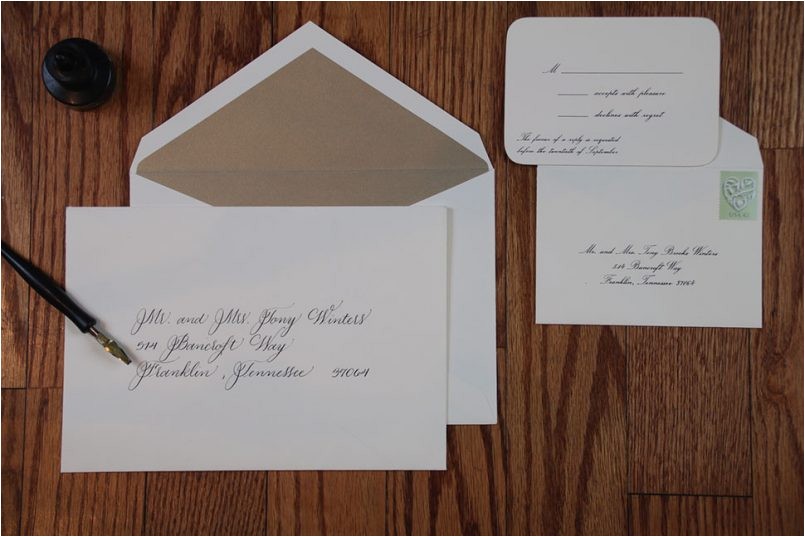 Mr. and Mrs. Tony Winters
514 Bancroft Way
Franklin, Tennessee 37064
M
accepts with pleasure
declines with regret
The favour of a reply is requested
before the twentieth of September
Mr. and Mrs. Tony Brooks Winters
514 Bancroft Way
Franklin, Tennessee 37064